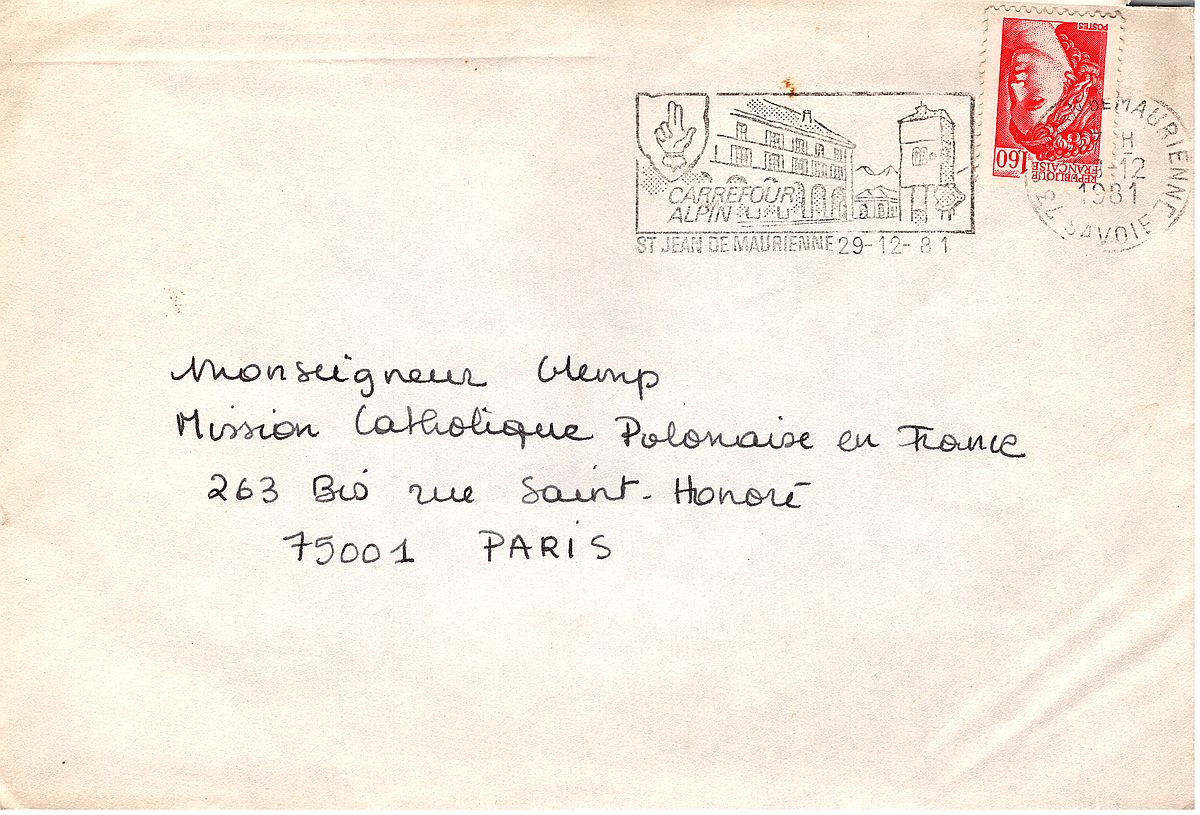 POSTES
1,60
REPUBLIQUE
FRANÇAISE
DE MAURIENNE
H
-12
1981
73 SAVOIE
CARREFOUR
ALPIN
ST JEAN DE MAURIENNE 29-12-81
Monseigneur Glemp
Mission Catholique Polonaise en France
263 Bis rue Saint-Honoré
75001 PARIS